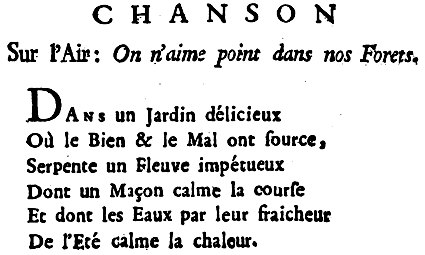 CHANSON
Sur l'Air: On n'aime point dans nos Forets.
DANS un Jardin délicieux
Où le Bien & le Mal ont ſource,
Serpente un Fleuve impétueux
Dont un Maçon calme la courſe
Et dont les Eaux par leur fraicheur
De l'Eté calme la chaleur.